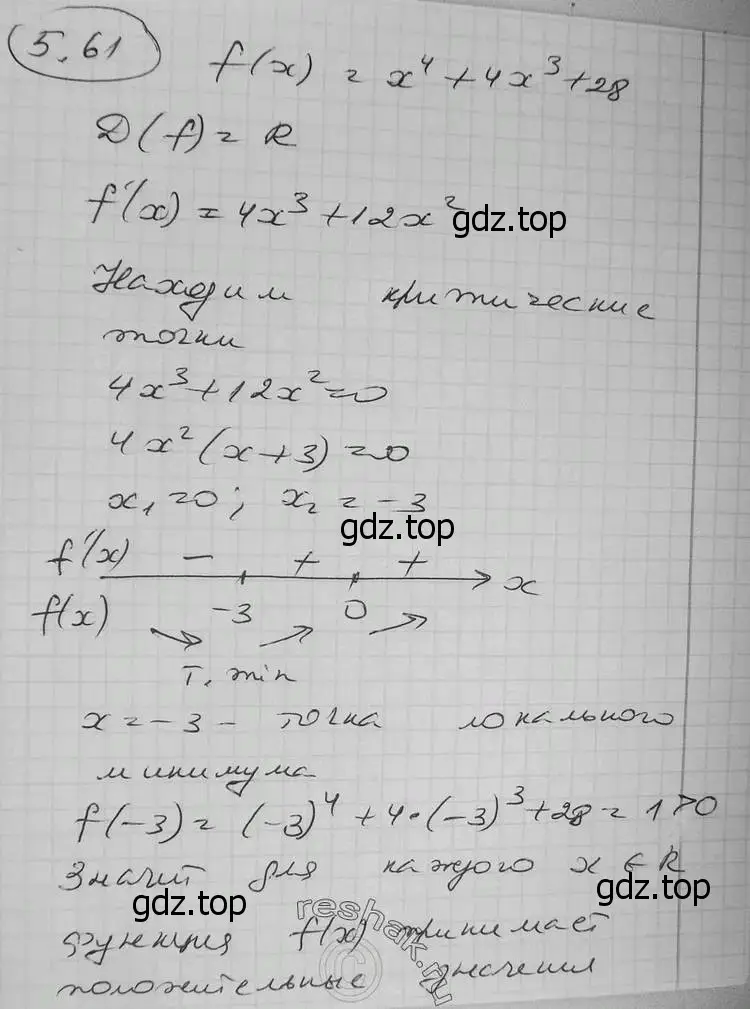 5.61
f(x) = x⁴ + 4x³ + 28
D(f) = R
f'(x) = 4x³ + 12x²
gdz.top
Находим критические
точки
4x³ + 12x² = 0
4x² (x + 3) = 0
x₁ = 0; x₂ = -3
gdz.top
f'(x) - + + x
f(x) -3 0
т. min
x = -3 - точка локального
минимума
f(-3) = (-3)⁴ + 4·(-3)³ + 28 = 1 > 0
Значит для каждого x ∈ R
gdz.top gdz.top
функция f(x) принимает
положительные значения
reshak.ru